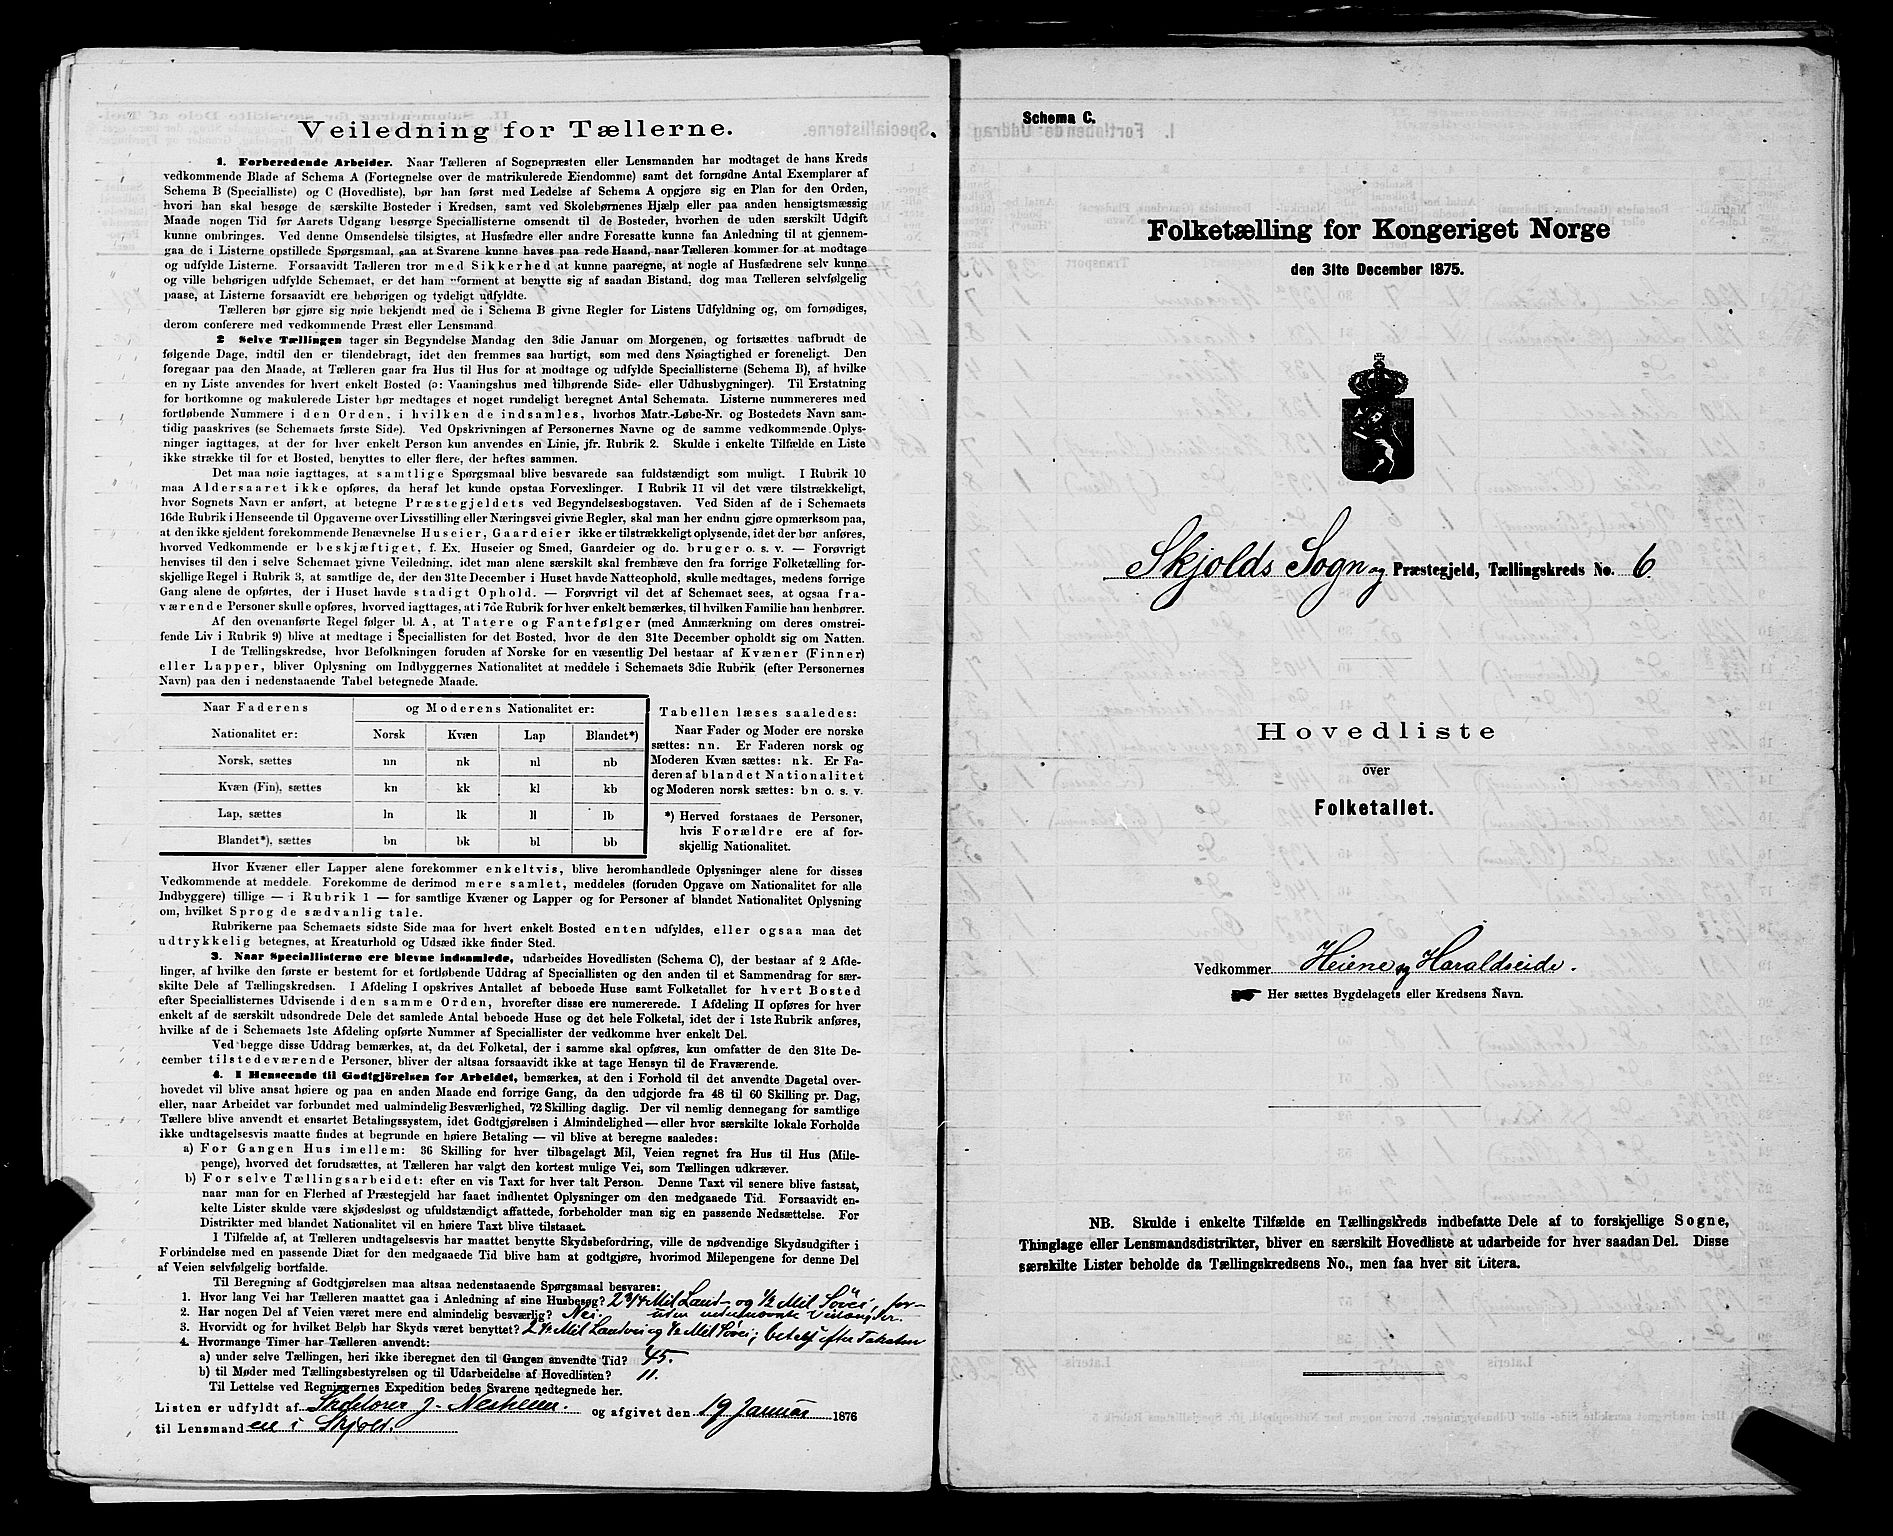 Veiledning for Tællerne.
1. Forberedende Arbeider. Naar Tælleren af Sognepræsten eller Lensmanden har modtaget de hans Kreds
vedkommende Blade af Schema A (Fortegnelse over de matrikulerede Eiendomme) samt det fornødne Antal Exemplarer af
Schema B (Specialliste) og C (Hovedliste), bør han først med Ledelse af Schema A opgjøre sig en Plan for den Orden,
hvori han skal besøge de særskilte Bosteder i Kredsen, samt ved Skolebørnenes Hjælp eller paa anden hensigtsmæssig
Maade nogen Tid før Aarets Udgang besørge Speciallisterne omsendt til de Bosteder, hvorhen de uden særskilt Udgift
kunne ombringes. Ved denne Omsendelse tilsigtes, at Husfædre eller andre Foresatte kunne faa Anledning til at gjennem-
gaa de i Listerne opstillede Spørgsmaal, saa at Svarene kunne haves paa rede Haand, naar Tælleren kommer for at modtage
og udfylde Listerne. Forsaavidt Tælleren tror med Sikkerhed at kunne paaregne, at nogle af Husfædrene selv kunne
og ville behørigen udfylde Schemaet, er det ham uforment at benytte sig af saadan Bistand, dog maa Tælleren selvfølgelig
paase, at Listerne forsaavidt ere behørigen og tydeligt udfyldte.
Tælleren bør gjøre sig nøie bekjendt med de i Schema B givne Regler for Listens Udfyldning og, om fornødiges,
derom conferere med vedkommende Præst eller Lensmand
2 Selve Tællingen tager sin Begyndelse Mandag den 3die Januar om Morgenen, og fortsættes uafbrudt de
følgende Dage, indtil den er tilendebragt, idet den fremmes saa hurtigt, som med dens Nøiagtighed er foreneligt. Den
foregaar paa den Maade, at Tælleren gaar fra Hus til Hus for at modtage og udfylde Speciallisterne (Schema B), af hvilke
en ny Liste anvendes for hvert enkelt Bosted (ɔ: Vaaningshus med tilhørende Side- eller Udhusbygninger). Til Erstatning
for bortkomne og makulerede Lister bør medtages et noget rundeligt beregnet Antal Schemata. Listerne nummereres med
fortløbende Nummere i den Orden, i hvilken de indsamles, hvorhos Matr.-Løbe-Nr. og Bostedets Navn sam-
tidig paaskrives (se Schemaets første Side). Ved Opskrivningen af Personernes Navne og de samme vedkommende Oplys-
ninger iagttages, at der for hver enkelt Person kun anvendes en Linie, jfr. Rubrik 2. Skulde i enkelte Tilfælde en Liste
ikke strække til for et Bosted, benyttes to eller flere, der heftes sammen.
Det maa nøie iagttages, at samtlige Spørgsmaal blive besvarede saa fuldstændigt som muligt. I Rubrik 10
maa Aldersaaret ikke opføres, da heraf let kunde opstaa Forvexlinger. I Rubrik 11 vil det være tilstrækkeligt,
hvor Sognets Navn er anført, at betegne Præstegjeldets ved Begyndelsesbogstaven. Ved Siden af de i Schemaets
16de Rubrik i Henseende til Opgaverne over Livsstilling eller Næringsvei givne Regler, skal man her endnu gjøre opmærksom paa,
at den ikke sjeldent forekommende Benævnelse Huseier, Gaardeier ikke er tilstrækkeligt oplysende, idet der bør anføres,
hvorved Vedkommende er beskjæftiget, f. Ex. Huseier og Smed, Gaardeier og do. bruger o. s. v. — Forøvrigt
henvises til den i selve Schemaet givne Veiledning, idet man alene særskilt skal fremhæve den fra forrige Folketælling for-
skjellige Regel i Rubrik 3, at samtlige de, der den 31te December i Huset havde Natteophold, skulle medtages, medens forrige
Gang alene de opførtes, der i Huset havde stadigt Ophold. — Forøvrigt vil det af Schemaet sees, at ogsaa fra-
værende Personer skulle opføres, hvorved iagttages, at i 7de Rubrik for hver enkelt bemærkes, til hvilken Familie han henhører.
Af den ovenanførte Regel følger bl. A, at Tatere og Fantefølger (med Anmærkning om deres omstrei-
fende Liv i Rubrik 9) blive at medtage i Speciallisten for det Bosted, hvor de den 31te December opholdt sig om Natten.
I de Tællingskredse, hvor Befolkningen foruden af Norske for en væsentlig Del bestaar af Kvæner (Finner)
eller Lapper, bliver Oplysning om Indbyggernes Nationalitet at meddele i Schemaets 3die Rubrik (efter Personernes
Navn) paa den i nedenstaaende Tabel betegnede Maade.
Naar Faderens og Moderens Nationalitet er:
Nationalitet er: Norsk Kvæn Lap Blandet*)
Norsk, sættes nn nk nl nb
Kvæn (Fin), sættes kn kk kl kb
Lap, sættes ln lk ll lb
Blandet*), sættes bn bk bl bb
Tabellen læses saaledes:
Naar Fader og Moder ere norske
sættes: nn. Er Faderen norsk og
Moderen Kvæn sættes: nk. Er Fa-
deren af blandet Nationalitet
og Moderen norsk sættes: bn o. s. v.
*) Herved forstaaes de Personer,
hvis Forældre ere af for-
skjellig Nationalitet.
Hvor Kvæner eller Lapper alene forekommer enkeltvis, blive heromhandlede Oplysninger alene for disses
Vedkommende at meddele. Forekomme de derimod mere samlet, meddeles (foruden Opgave om Nationalitet for alle
Indbyggere) tillige — i Rubrik 1 — for samtlige Kvæner og Lapper og for Personer af blandet Nationalitet Oplysning
om, hvilket Sprog de sædvanlig tale.
Rubrikerne paa Schemaets sidste Side maa for hvert enkelt Bosted enten udfyldes, eller ogsaa maa det
udtrykkelig betegnes, at Kreaturhold og Udsæd ikke finder Sted.
3. Naar Speciallisterne ere blevne indsamlede, udarbeides Hovedlisten (Schema C), der bestaar af 2 Afde-
linger, af hvilke den første er bestemt for et fortløbende Uddrag af Speciallisten og den anden til et Sammendrag for sær-
skilte Dele af Tællingskredsen. I Afdeling I opskrives Antallet af beboede Huse samt Folketallet for hvert Bosted
efter Speciallisternes Udvisende i den samme Orden, hvorefter disse ere numererede. I Afdeling II opføres for hver
enkelt af de særskilt udsondrede Dele det samlede Antal beboede Huse og det hele Folketal, idet der i 1ste Rubrik anføres,
hvilke af de i Schemaets 1ste Afdeling opførte Nummer af Speciallister der vedkomme hver enkelt Del.
Ved begge disse Uddrag bemærkes, at, da det Folketal, der i samme skal opføres, kun omfatter de den 31te De-
cember tilstedeværende Personer, bliver der altsaa forsaavidt ikke at tage Hensyn til de Fraværende.
4. I Henseende til Godtgjörelsen for Arbeidet, bemærkes, at den i Forhold til det anvendte Dagetal over-
hovedet vil blive ansat høiere og paa en anden Maade end forrige Gang, da den udgjorde fra 48 til 60 Skilling pr. Dag,
eller, naar Arbeidet var forbundet med ualmindelig Besværlighed, 72 Skilling daglig. Der vil nemlig dennegang for samtlige
Tællere blive anvendt et ensartet Betalingssystem, idet Godtgjørelsen i Almindelighed — eller hvor særskilte lokale Forholde
ikke undtagelsesvis maatte findes at begrunde en høiere Betaling — vil blive at beregne saaledes:
a) For Gangen Hus imellem: 36 Skilling for hver tilbagelagt Mil, Veien regnet fra Hus til Hus (Mile-
penge), hvorved det forudsættes, at Tælleren har valgt den kortest mulige Vei, som Tællingen udkræver.
b) For selve Tællingsarbeidet: efter en vis Taxt for hver talt Person. Denne Taxt vil senere blive fastsat,
naar man for en Flerhed af Præstegjeld har faaet indhentet Oplysninger om den medgaaede Tid. Forsaavidt en-
kelte Lister skulde være skjødesløst og ufuldstændigt affattede, forbeholder man sig en passende Nedsættelse. For
Distrikter med blandet Nationalitet vil en høiere Taxt blive tilstaaet.
I Tilfælde af, at Tælleren undtagelsesvis har maattet benytte Skydsbefordring, ville de nødvendige Skydsudgifter i
Forbindelse med en passende Diæt for den medgaaede Tid blive ham at godtgjøre, hvorimod Milepengene for denne Del
af Veien selvfølgelig bortfalde.
Til Beregning af Godtgjørelsen maa altsaa nedenstaaende Spørgsmaal besvares:
1. Hvor lang Vei har Tælleren maattet gaa i Anledning af sine Husbesøg? 2 3/4 Mil Land- og 1/2 Mil Søvei, for-
2. Har nogen Del af Veien været mere end almindelig besværlig? Nei. uden
3. Hvorvidt og for hvilket Beløb har Skyds været benyttet? 2 1/2 Mil Landvei og 1/2 Mil Søvei; betalt efter Taksten
4. Hvormange Timer har Tælleren anvendt:
a) under selve Tællingen, heri ikke iberegnet den til Gangen anvendte Tid? 45.
b) til Møder med Tællingsbestyrelsen og til Udarbeidelse af Hovedlisten? 11.
Til Lettelse ved Regningernes Expedition bedes Svarene nedtegnede her.
Listen er udfyldt af J. Nesheim. og afgivet den 19 Januar 1876
til Lensmand en i Skjold.
Schema C.
Folketælling for Kongeriget Norge
den 31te December 1875.
Skjolds Sogn og Præstegjeld, Tællingskreds No. 6.
Hovedliste
over
Folketallet.
Vedkommer Heiene og Haraldseide.
Her sættes Bygdelagets eller Kredsens Navn.
NB. Skulde i enkelte Tilfælde en Tællingskreds indbefatte Dele af to forskjellige Sogne,
Thinglage eller Lensmandsdistrikter, bliver en særskilt Hovedliste at udarbeide for hver saadan Del. Disse
særskilte Lister beholde da Tællingskredsens No., men faa hver sit Litera.